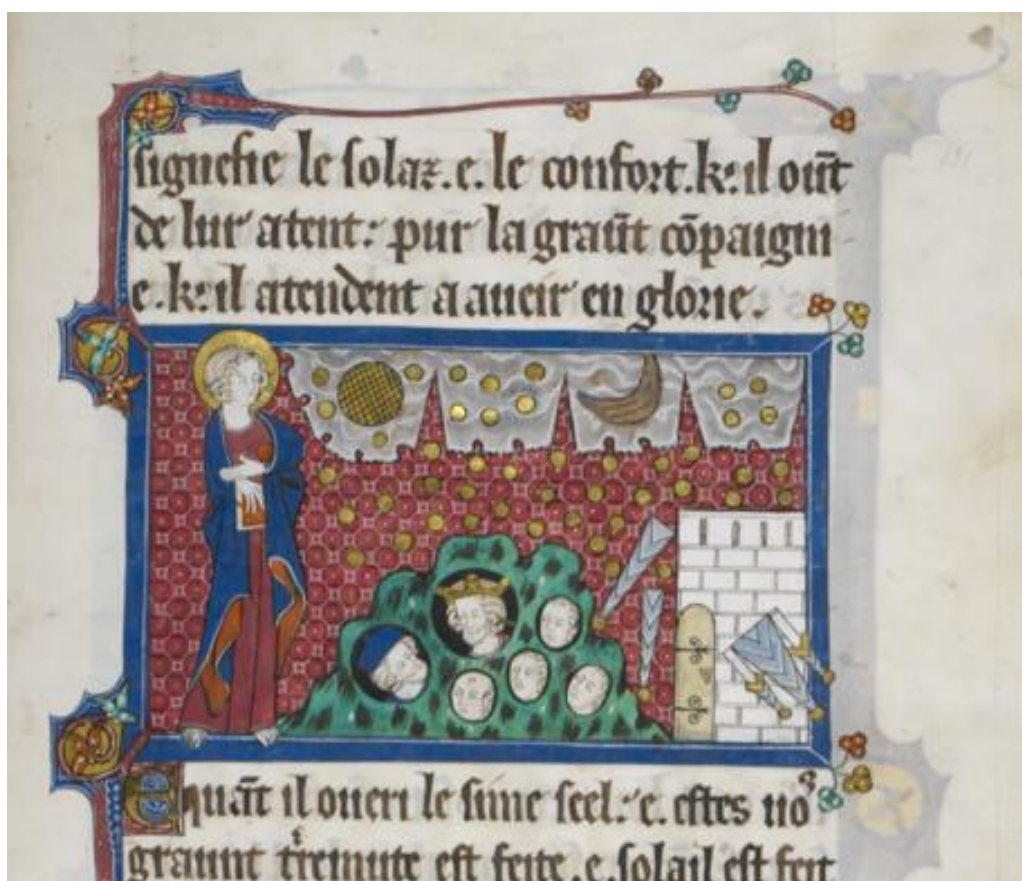 signefie le solaz. e. le confort. k᷑ il oūt
de lur atent: pur la graūt cōpaigni
e. k᷑ il atendent a aueir en glorie.
E quāt il oueri le sime seel: e. estes uoꝰ
graunt t᷑remute est feite. e. solail est feit